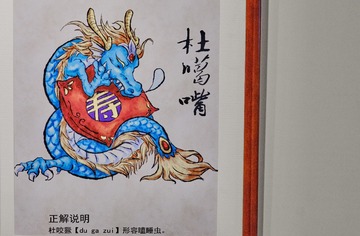 杜噶嘴
寿
正解说明
杜咬厭【du ga zui】形容嗑睡虫。